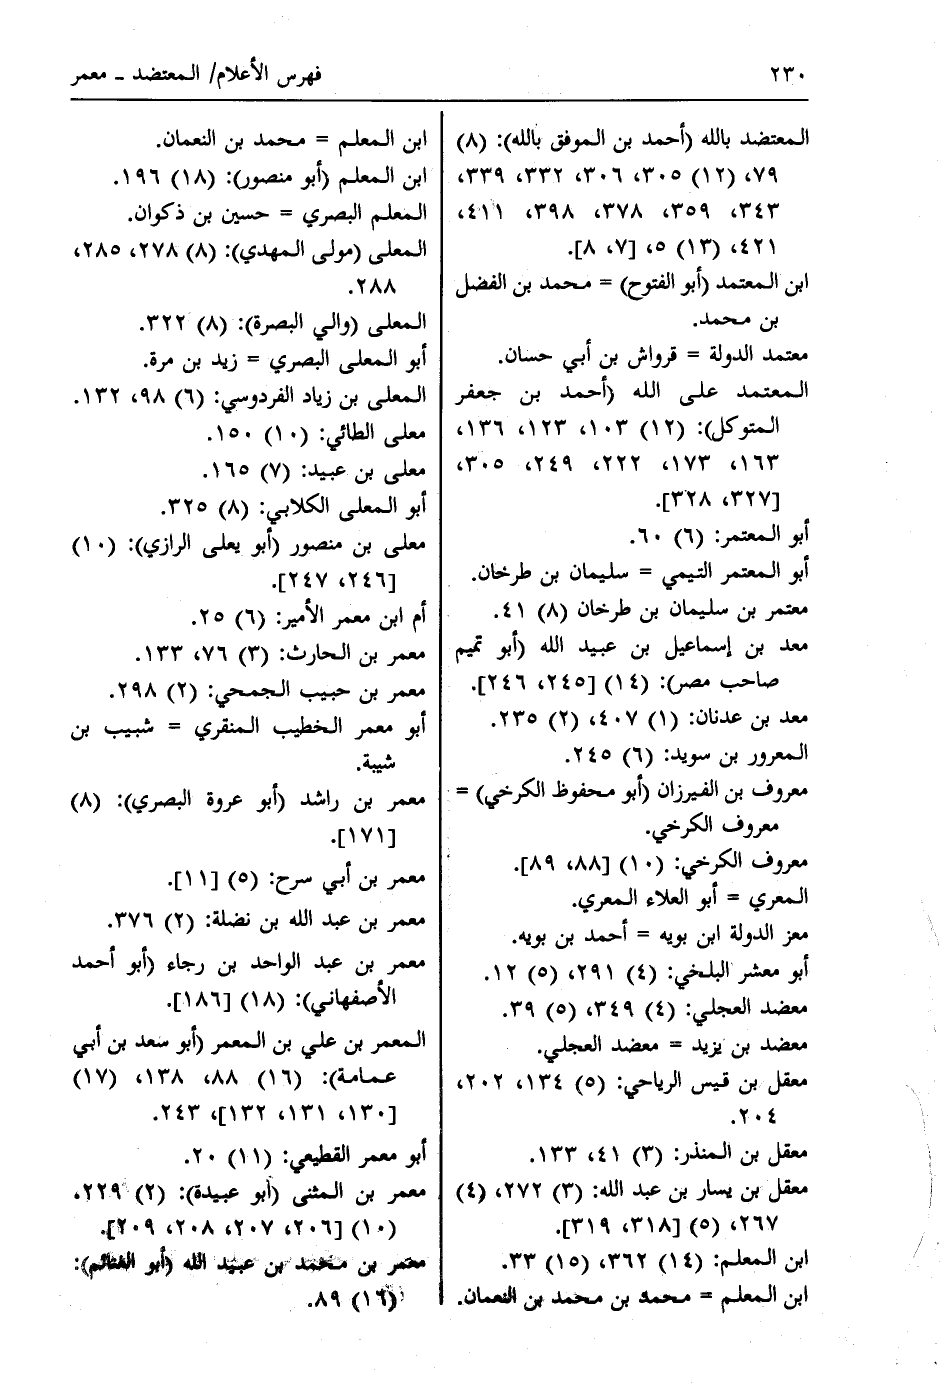 ٢٣٠
فهرس الأعلام/ المعتضد ـ معمر
المعتضد بالله (أحمد بن الموفق بالله): (٨)
٧٩، (١٢) ٣٠٥، ٣٠٦، ٣٣٢، ٣٣٩،
٣٤٣، ٣٥٩، ٣٧٨، ٣٩٨، ٤١١،
٤٢١، (١٣) ٥، [٧، ٨].
ابن المعتمد (أبو الفتوح) = محمد بن الفضل
بن محمد.
معتمد الدولة = قرواش بن أبي حسان.
المعتمد على الله (أحمد بن جعفر
المتوكل): (١٢) ١٠٣، ١٢٣، ١٣٦،
١٦٣، ١٧٣، ٢٢٢، ٢٤٩، ٣٠٥،
[٣٢٧، ٣٢٨].
أبو المعتمر: (٦) ٦٠.
أبو المعتمر التيمي = سليمان بن طرخان.
معتمر بن سليمان بن طرخان (٨) ٤١.
معد بن إسماعيل بن عبيد الله (أبو تميم
صاحب مصر): (١٤) [٢٤٥، ٢٤٦].
معد بن عدنان: (١) ٤٠٧، (٢) ٢٣٥.
المعرور بن سويد: (٦) ٢٤٥.
معروف بن الفيرزان (أبو محفوظ الكرخي) =
معروف الكرخي.
معروف الكرخي: (١٠) [٨٨، ٨٩].
المعري = أبو العلاء المعري.
معز الدولة ابن بويه = أحمد بن بويه.
أبو معشر البلخي: (٤) ٢٩١، (٥) ١٢.
معضد العجلي: (٤) ٣٤٩، (٥) ٣٩.
معضد بن يزيد = معضد العجلي.
معقل بن قيس الرياحي: (٥) ١٣٤، ٢٠٢،
٢٠٤.
معقل بن المنذر: (٣) ٤١، ١٣٣.
معقل بن يسار بن عبد الله: (٣) ٢٧٢، (٤)
٢٦٧، (٥) [٣١٨، ٣١٩].
ابن المعلم: (١٤) ٣٦٢، (١٥) ٣٣.
ابن المعلم = محمد بن محمد بن النعمان.
ابن المعلم = محمد بن النعمان.
ابن المعلم (أبو منصور): (١٨) ١٩٦.
المعلم البصري = حسين بن ذكوان.
المعلى (مولى المهدي): (٨) ٢٧٨، ٢٨٥،
٢٨٨.
المعلى (والي البصرة): (٨) ٣٢٢.
أبو المعلى البصري = زيد بن مرة.
المعلى بن زياد الفردوسي: (٦) ٩٨، ١٣٢.
معلى الطائي: (١٠) ١٥٠.
معلى بن عبيد: (٧) ١٦٥.
أبو المعلى الكلابي: (٨) ٣٢٥.
معلى بن منصور (أبو يعلى الرازي): (١٠)
[٢٤٦، ٢٤٧].
أم ابن معمر الأمير: (٦) ٢٥.
معمر بن الحارث: (٣) ٧٦، ١٣٣.
معمر بن حبيب الجمحي: (٢) ٢٩٨.
أبو معمر الخطيب المنقري = شبيب بن
شيبة.
معمر بن راشد (أبو عروة البصري): (٨)
[١٧١].
معمر بن أبي سرح: (٥) [١١].
معمر بن عبد الله بن نضلة: (٢) ٣٧٦.
معمر بن عبد الواحد بن رجاء (أبو أحمد
الأصفهاني): (١٨) [١٨٦].
المعمر بن علي بن المعمر (أبو سعد بن أبي
عمامة): (١٦) ٨٨، ١٣٨، (١٧)
[١٣٠، ١٣١، ١٣٢]، ٢٤٣.
أبو معمر القطيعي: (١١) ٢٠.
معمر بن المثنى (أبو عبيدة): (٢) ٢٢٩،
(١٠) [٢٠٦، ٢٠٧، ٢٠٨، ٢٠٩].
معمر بن محمد بن عبيد الله (أبو الغنائم):
(١٦) ٨٩.